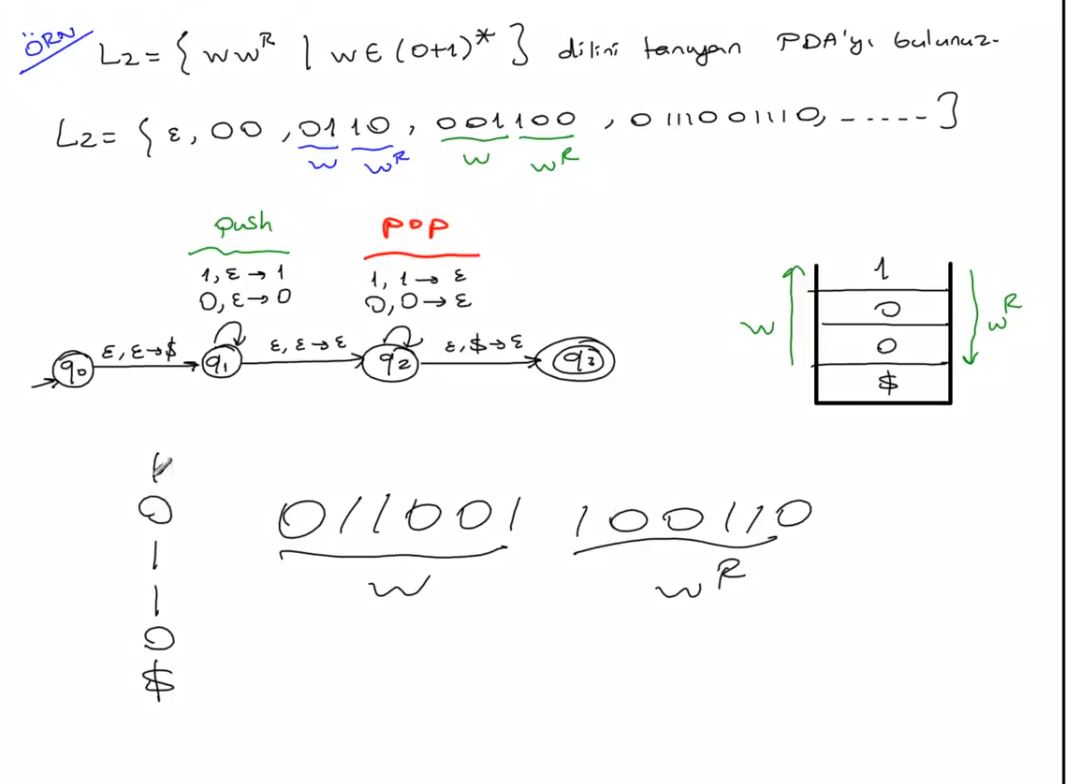 ÖRN L2 = { ww^R | w ∈ (0+1)^* } dilini tanıyan PDA'yı bulunuz.
L2 = { ε, 00, 0110, 001100, 0111001110, ----- }
w w^R w w^R
push pop
1, ε → 1 1, 1 → ε
0, ε → 0 0, 0 → ε
q0 ε, ε → $ q1 ε, ε → ε q2 ε, $ → ε q3
w w^R
1
0
0
$
0
1
1
0
$
011001 100110
w w^R